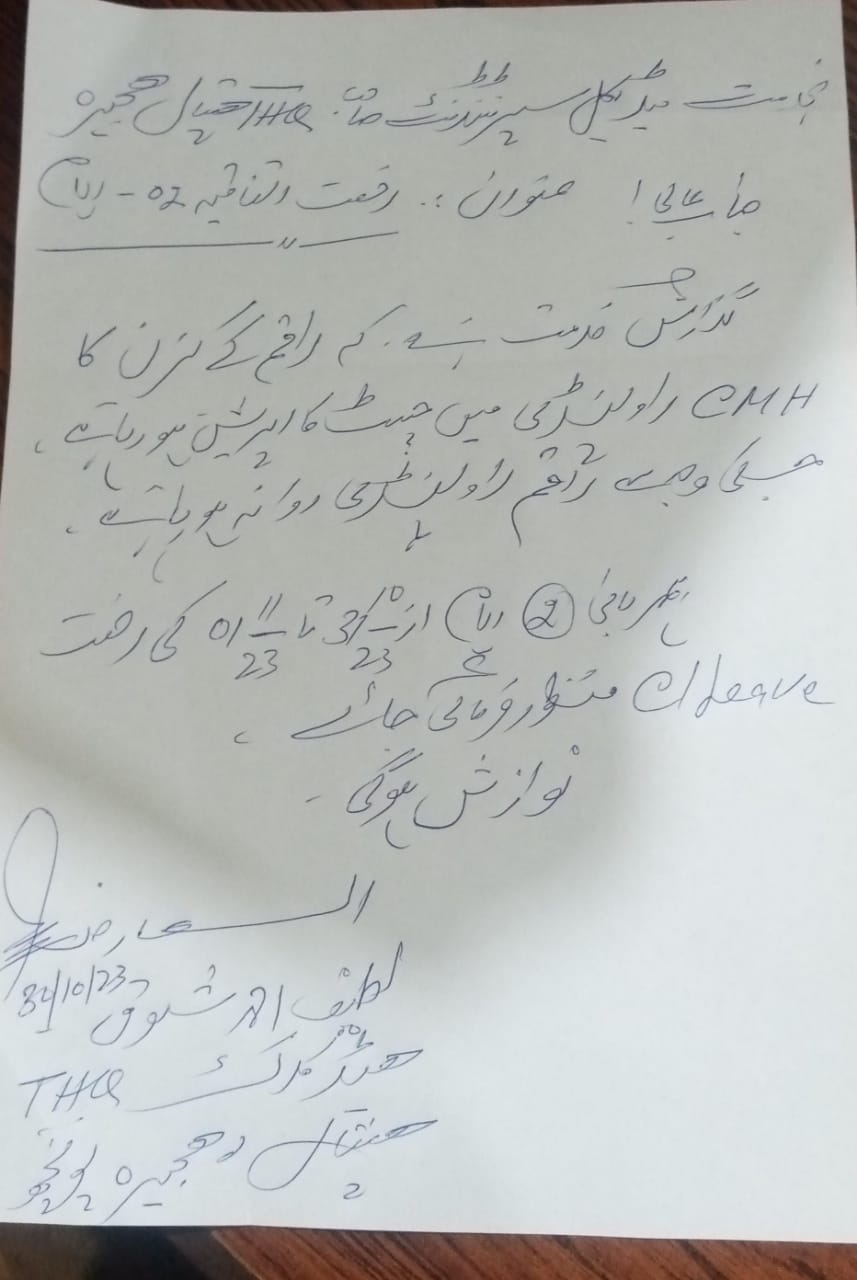 بخدمت میڈیکل سپرنٹنڈنٹ صاحب THQ ہسپتال ہجیرہ
جناب عالی! عنوان :۔ رخصت اتفاقیہ 02 - ایام
گذارش خدمت ہے۔ کہ راقم کے کزن کا
CMH راولپنڈی میں پیٹ کا اپریشن ہو رہا ہے۔
جسکی وجہ سے راقم راولپنڈی روانہ ہو رہا ہے۔
بمہربانی 2 ایام از 31/10/23 تا 01/11/23 کی رخصت
C/Leave منظور فرمائی جائے۔
نوازش ہوگی۔
العارض
لطیف احمد
30/10/23
ہیڈ کلرک THQ
ہسپتال ہجیرہ پونچھ